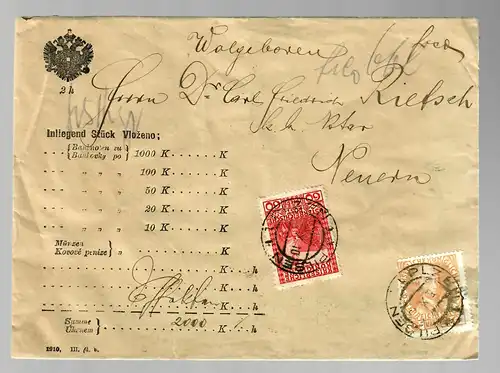 Wolgeboren
2 h
Herrn Dr. Carl Friedrich Rietsch
k. k. Notar
Neuern
Inliegend Stück Vloženo:
Banknoten zu
Bankovky po
1000 K . . . . . . K
„ „ „ 100 K . . . . . . K
„ „ „ 50 K . . . . . . K
„ „ „ 20 K . . . . . . K
„ „ „ 10 K . . . . . . K
Münzen
Kovové peníze
K
K . . . h
Effekten K . . . h
Summe
Úhrnem
2000 K . . h
1910. III. fl. b.
PILSEN
PLZEŇ
PILSEN
PLZEŇ